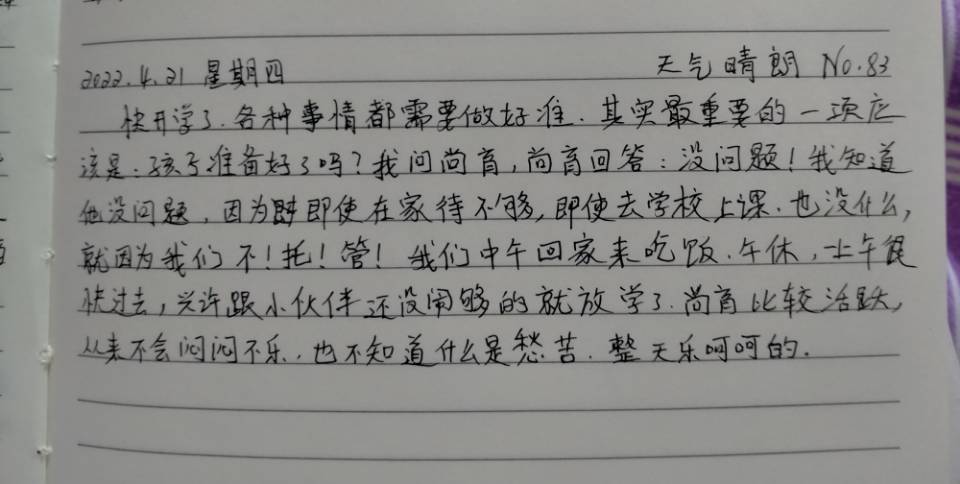 2022.4.21 星期四 天气晴朗 No.83
快开学了.各种事情都需要做好准.其实最重要的一项应
该是:孩子准备好了吗?我问尚育,尚育回答:没问题!我知道
他没问题,因为即使在家待不够,即使去学校上课.也没什么,
就因为我们不!托!管!我们中午回家来吃饭.午休,一上午很
快过去,兴许跟小伙伴还没闹够的就放学了.尚育比较活跃,
从来不会闷闷不乐.也不知道什么是愁苦.整天乐呵呵的.